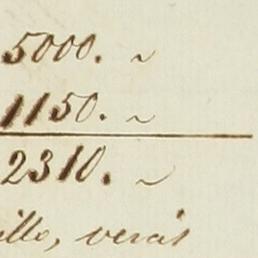 5000. ~
1150. ~
2310. ~
illo, verás